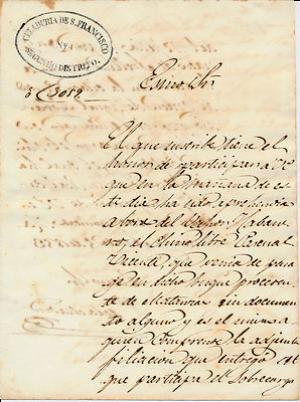 CELADURIA DE S. FRANCISCO
Nº
SEGUNDO DISTRITO.
El que suscribe tiene el
honor de participar a V.E
que en la mañana de es
te dia ha sido aprehendido
abordo del Vapor Habane
ro, el Chino libre Pascual
Vicente, que venia de pasa
ge en dicho buque proceden
te de Matanzas sin documen
to alguno y es el mismo a
quien comprende la adjunta
filiacion que entregó
que participa el Sobrecargo